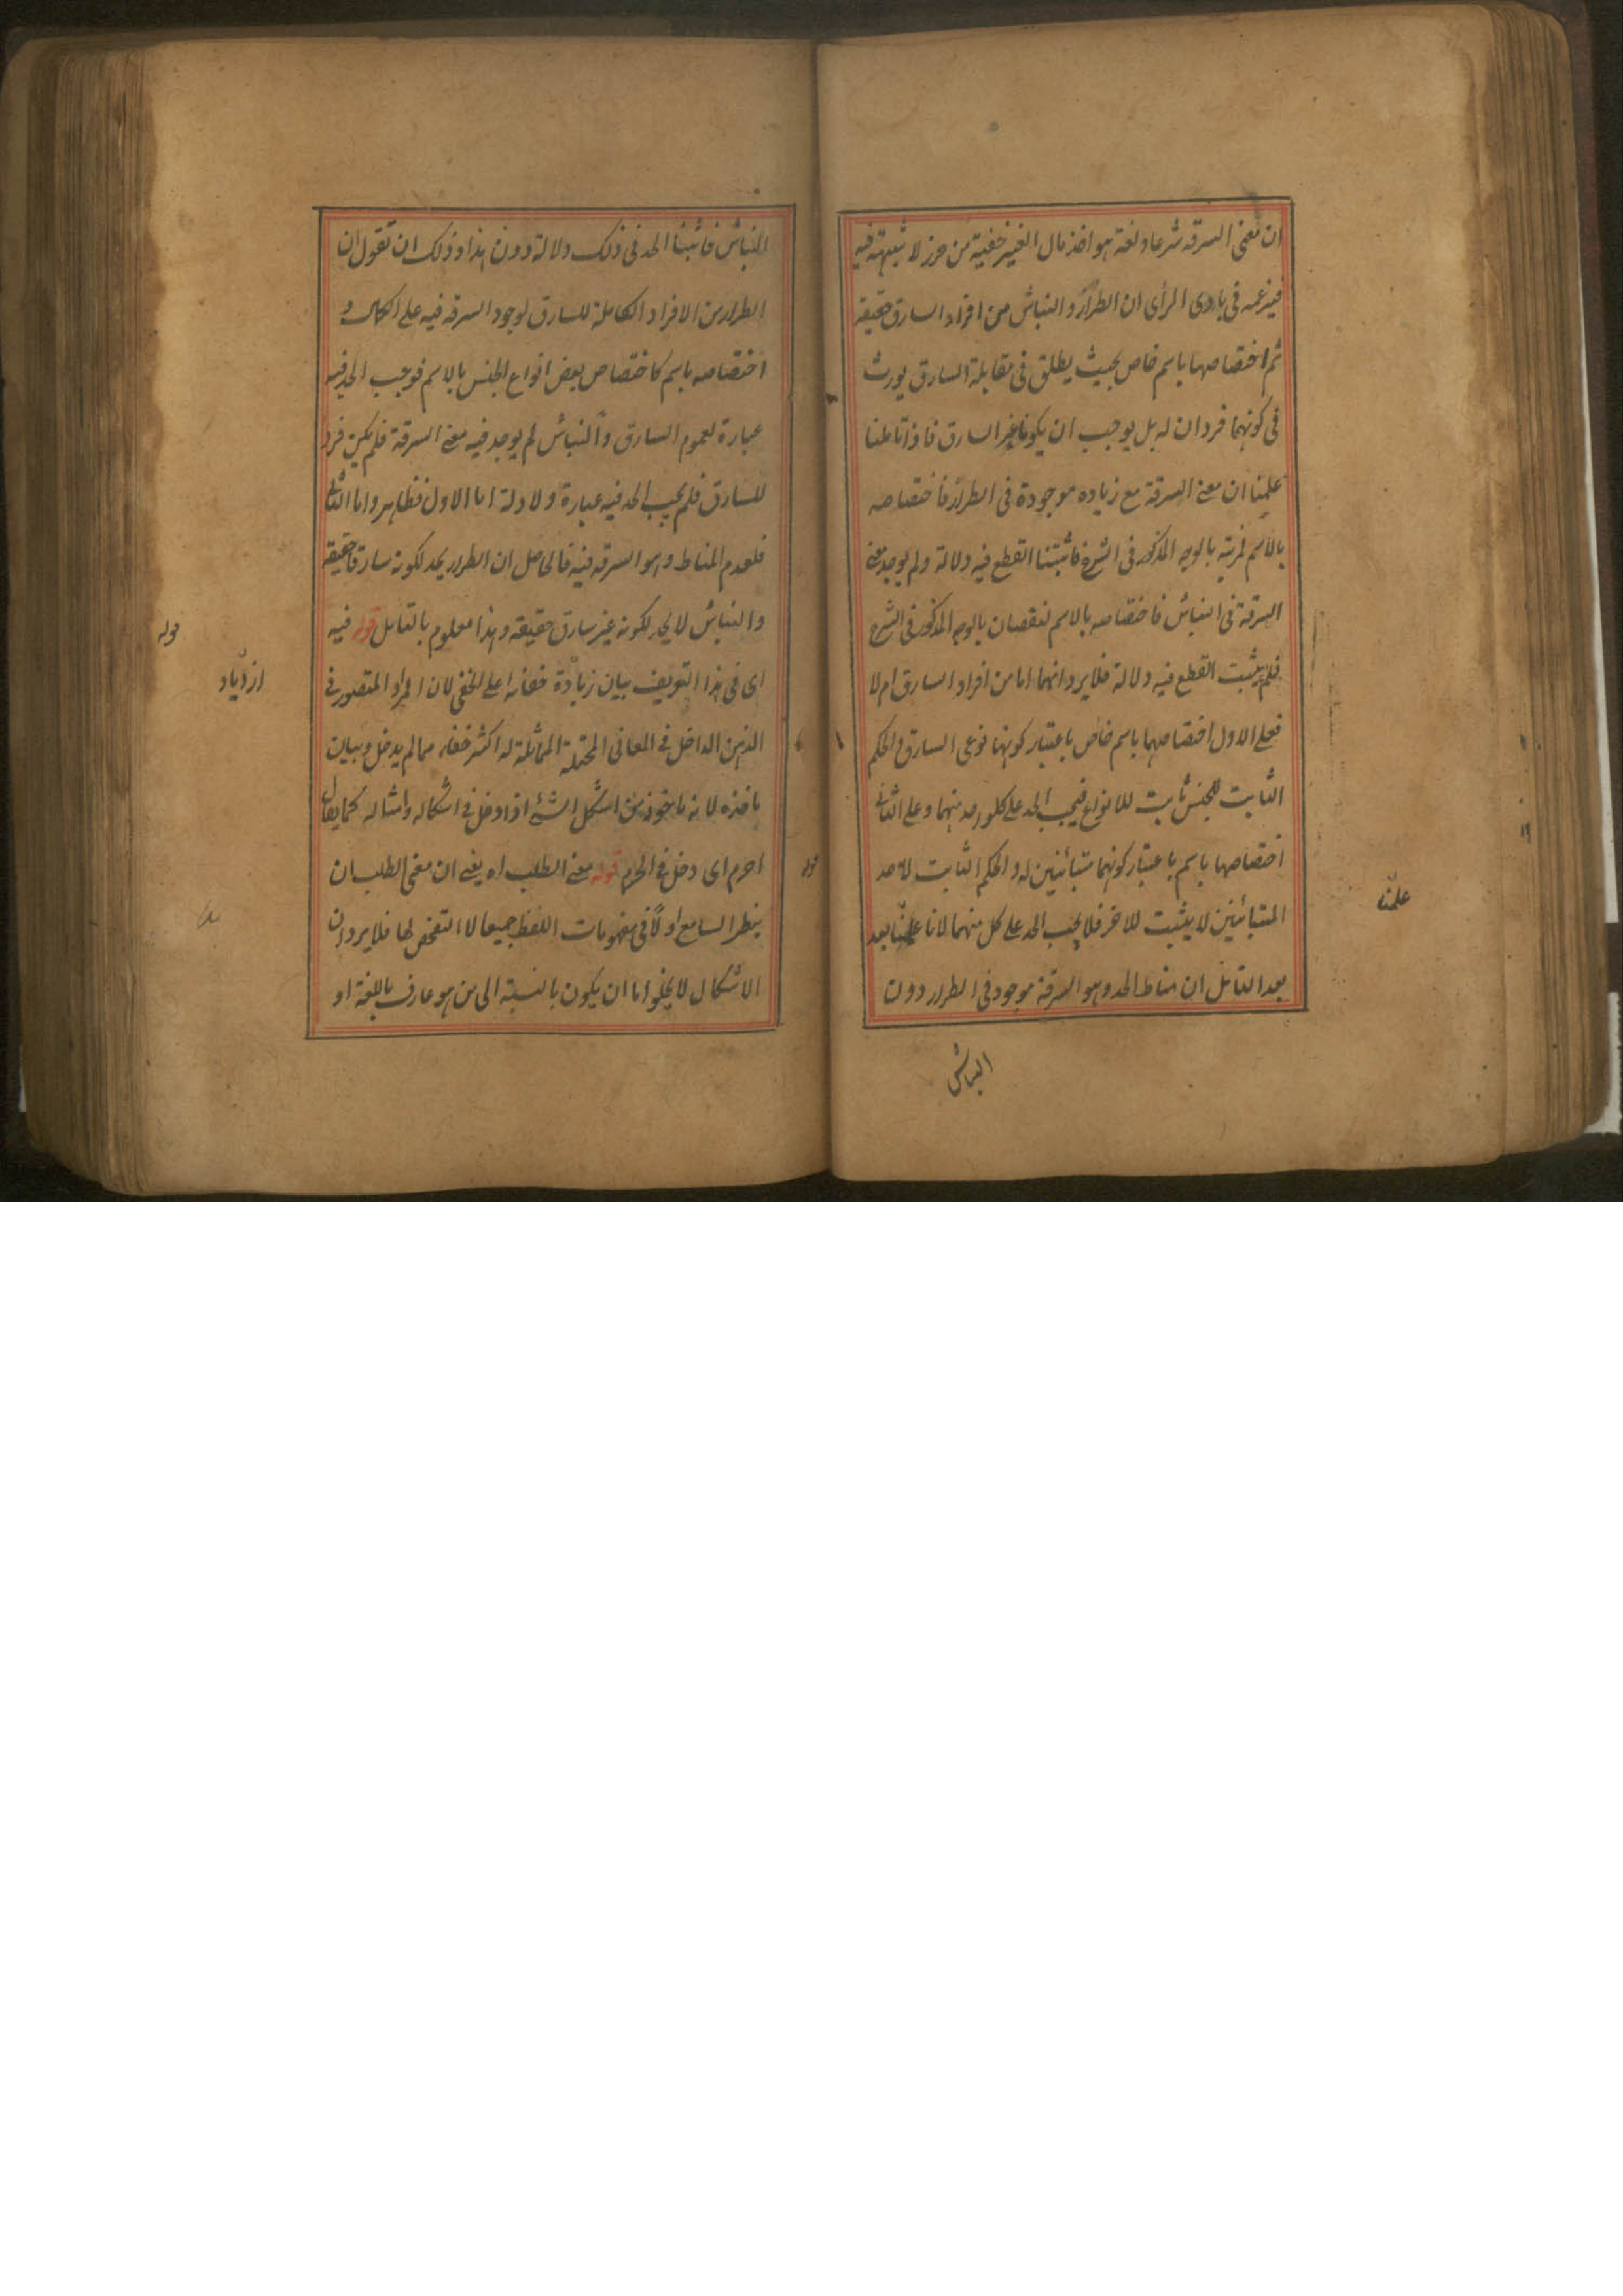 ان معنى السرقه شرعا ولغة هو اخذ مال الغير خفية من حرز لا شبهة فيه
فيزعمه فى بادى الرأى ان الطرار والنباش من افراد السارق حقيقة
ثم اختصاصهما باسم خاص بحيث يطلق فى مقابلة السارق يورث
فى كونهما فردان له بل يوجب ان يكونا غير السارق فاذا تاملنا
علمنا ان معنى السرقة مع زياده موجودة فى الطرار فاختصاصه
بالاسم لمزيته بالوجه المذكور فى الشرح فاثبتنا القطع فيه دلالة ولم يوجد معنى
السرقة فى النباش فاختصاصه بالاسم لنقصان بالوجه المذكور فى الشرح
فلم يثبت القطع فيه دلالة فلا يرد انهما اما من افراد السارق ام لا
فعلى الاول اختصاصهما باسم خاص باعتبار كونهما نوعى السارق والحكم
الثابت للجنس ثابت للانواع فيجب الحد على كلو احد منهما وعلى الثانى
اختصاصهما باسم باعتبار كونهما متبائنين له والحكم الثابت لاحد
المتبائنين لا يثبت للاخر فلا يجب الحد على كل منهما لانا علمنا بعد
بعد التامل ان مناط الحد وهو السرقة موجود فى الطرار دون
علمنا
النباش
النباش فاثبتنا الحد فى ذلك دلالة دون هذا وذلك ان تقول ان
الطرار من الافراد الكاملة للسارق لوجود السرقة فيه على الكمال و
اختصاصه باسم كاختصاص بعض انواع الجنس بالاسم فوجب الحد فيه
عبارة لعموم السارق والنباش لم يوجد فيه معنى السرقة فلم يكن فرد
للسارق فلم يجب الحد فيه عبارة ولا دلة اما الاول فظاهر واما الثانى
فلعدم المناط وهو السرقه فيه فالحاصل ان الطرار يحد لكونه سارقا حقيقة
والنباش لا يحد لكونه غير سارق حقيقة وهذا معلوم بالتامل قوله فيه
اى فى هذا التعريف بيان زيادة خفائه على الخفى لان المراد المتصور فى
الذهن الداخل فى المعانى المحتملة المماثلة له اكثر خفاء مما لم يدخل وبيان
ماخذه لانه ماخوذ من اشكل الشئ اذا دخل فى اشكاله وامثاله كما يقال
احرم اى دخل فى الحرم قوله معنى الطلب اه يعنى ان معنى الطلب ان
ينظر السامع اولا فى مفهومات اللفظ جميعا لا التفحص لها فلا يرد ان
الاشكال لا يخلو اما ان يكون بالنسبة الى من هو عارف باللغة او
قوله
ازدياد
قوله